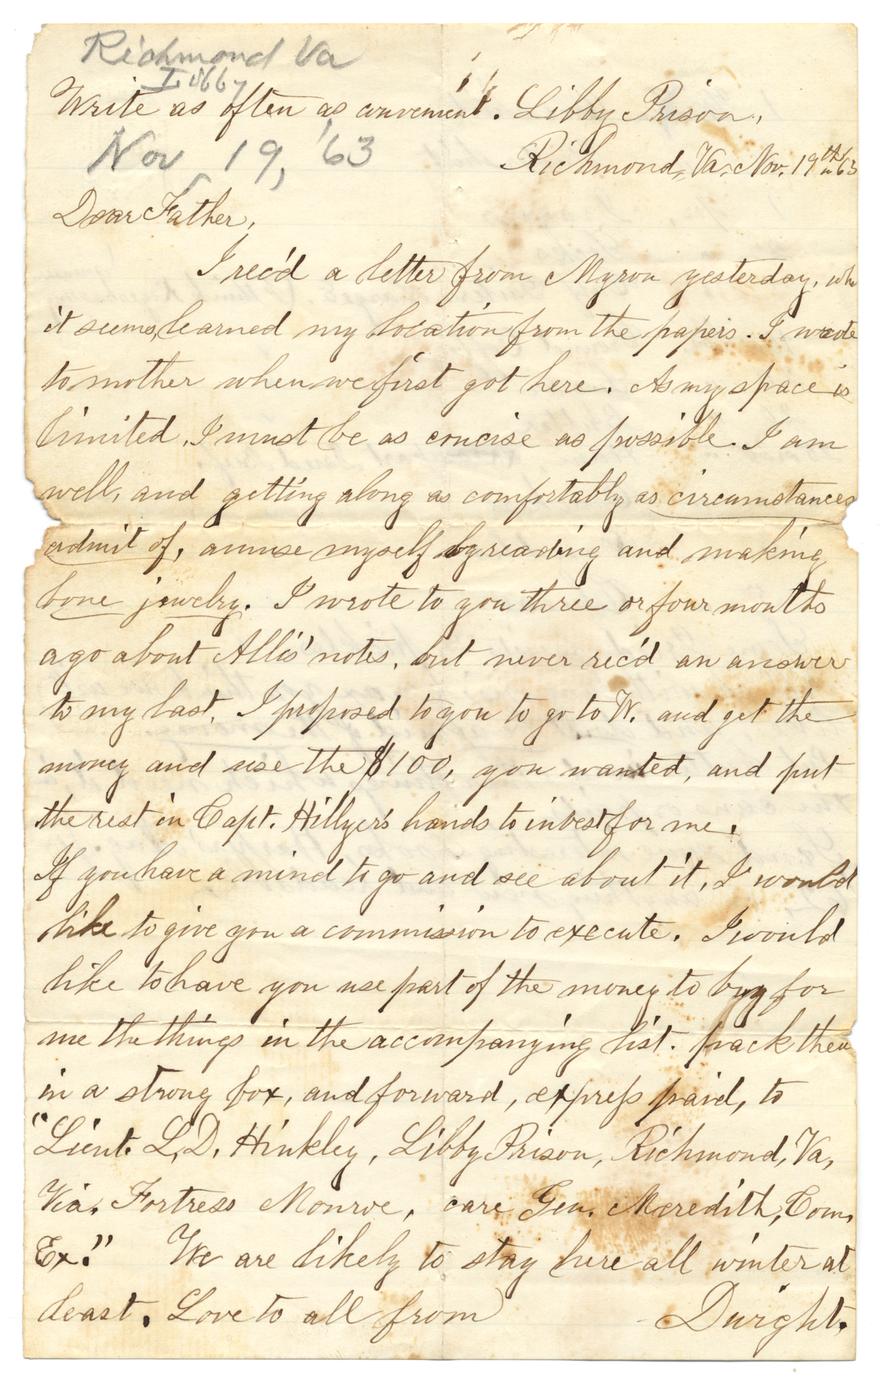 Richmond Va
Write as often as convenient. Libby Prison,
Nov 19, '63
Richmond, Va, Nov. 19th "63
Dear Father,
I rec'd a letter from Myron yesterday, who
it seems, learned my location from the papers. I wrote
to mother when we first got here. As my space is
limited, I must be as concise as possible. I am
well, and getting along as comfortably as circumstances
admit of, amuse myself by reading and making
bone jewelry. I wrote to you three or four months
ago about Allis' notes, but never rec'd an answer
to my last. I proposed to you to go to W. and get the
money and use the $100, you wanted, and put
the rest in Capt. Hillyer's hands to invest for me.
If you have a mind to go and see about it, I would
like to give you a commission to execute. I would
like to have you use part of the money to buy for
me the things in the accompanying list. pack them
in a strong box, and forward, express paid, to
"Lieut. L.D. Hinkley, Libby Prison, Richmond, Va,
Via, Fortress Monroe, care Gen. Meredith, Com,
Ex." We are likely to stay here all winter at
least. Love to all from Dwight.